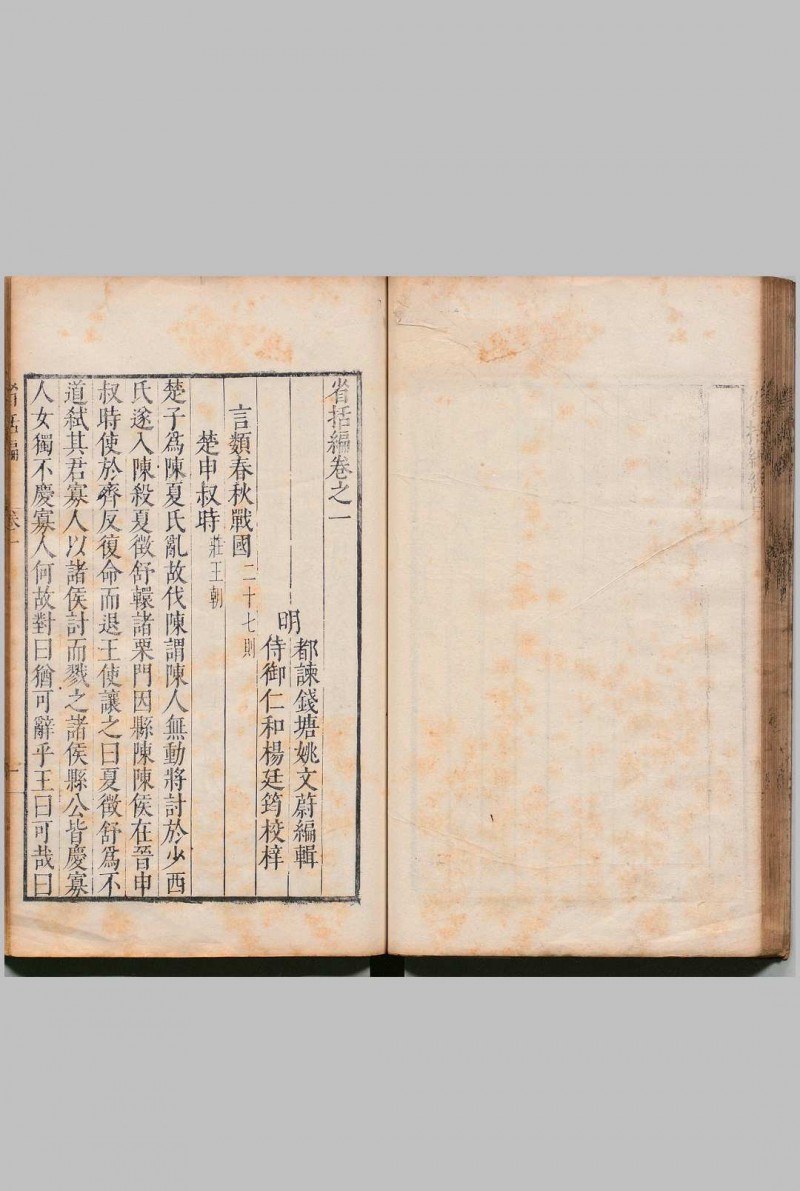 省括編卷之一
明
都諫錢塘姚文蔚編輯
侍御仁和楊廷筠校梓
言類春秋戰國二十七則
楚申叔時莊王朝
楚子爲陳夏氏亂故伐陳謂陳人無動將討於少西
氏遂入陳殺夏徵舒轘諸栗門因縣陳陳侯在晉申
叔時使於齊反復命而退王使讓之曰夏徵舒爲不
道弑其君寡人以諸侯討而戮之諸侯縣公皆慶寡
人女獨不慶寡人何故對曰猶可辭乎王曰可哉曰
省括編
卷一
一